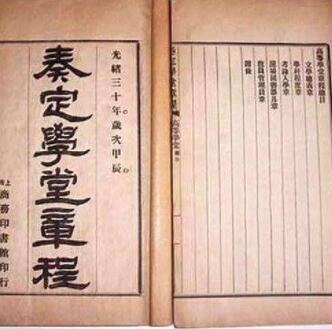 高等學堂章程目
立學總義章
學科程度章
考錄入學章
屋場圖書器具章
教員管理員章
高等學堂
光緒三十年歲次甲辰
奏定學堂章程
上海
商務印書館印行